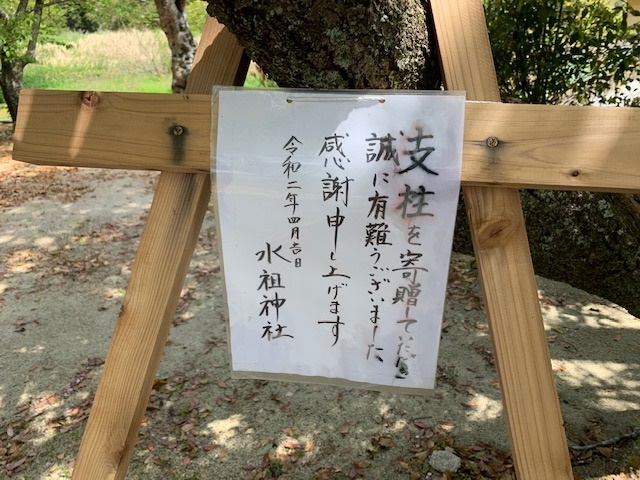 支柱を寄贈して頂き
誠に有難うございました
感謝申し上げます
令和二年四月吉日
水祖神社